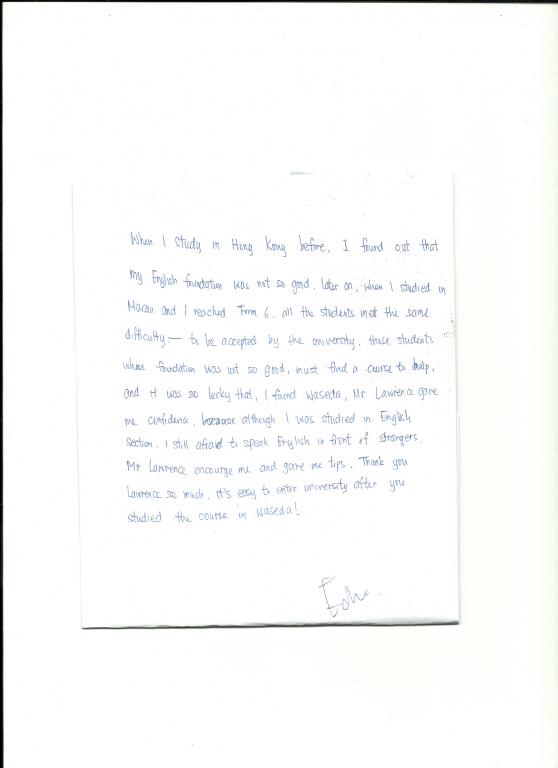 When I study in Hong Kong before, I found out that
my English foundation was not so good, later on, when I studied in
Macau and I reached Form 6, all the students met the same
difficulty:— to be accepted by the university. those students
whose foundation was not so good, must find a course to help,
and it was so lucky that, I found Waseda, Mr Lawrence gave
me confidence, because although I was studied in English
Section, I still afraid to speak English in front of strangers.
Mr Lawrence encourge me and gave me tips. Thank you
Lawrence so much, it's easy to enter university after you
studied the course in Waseda!
Echo.